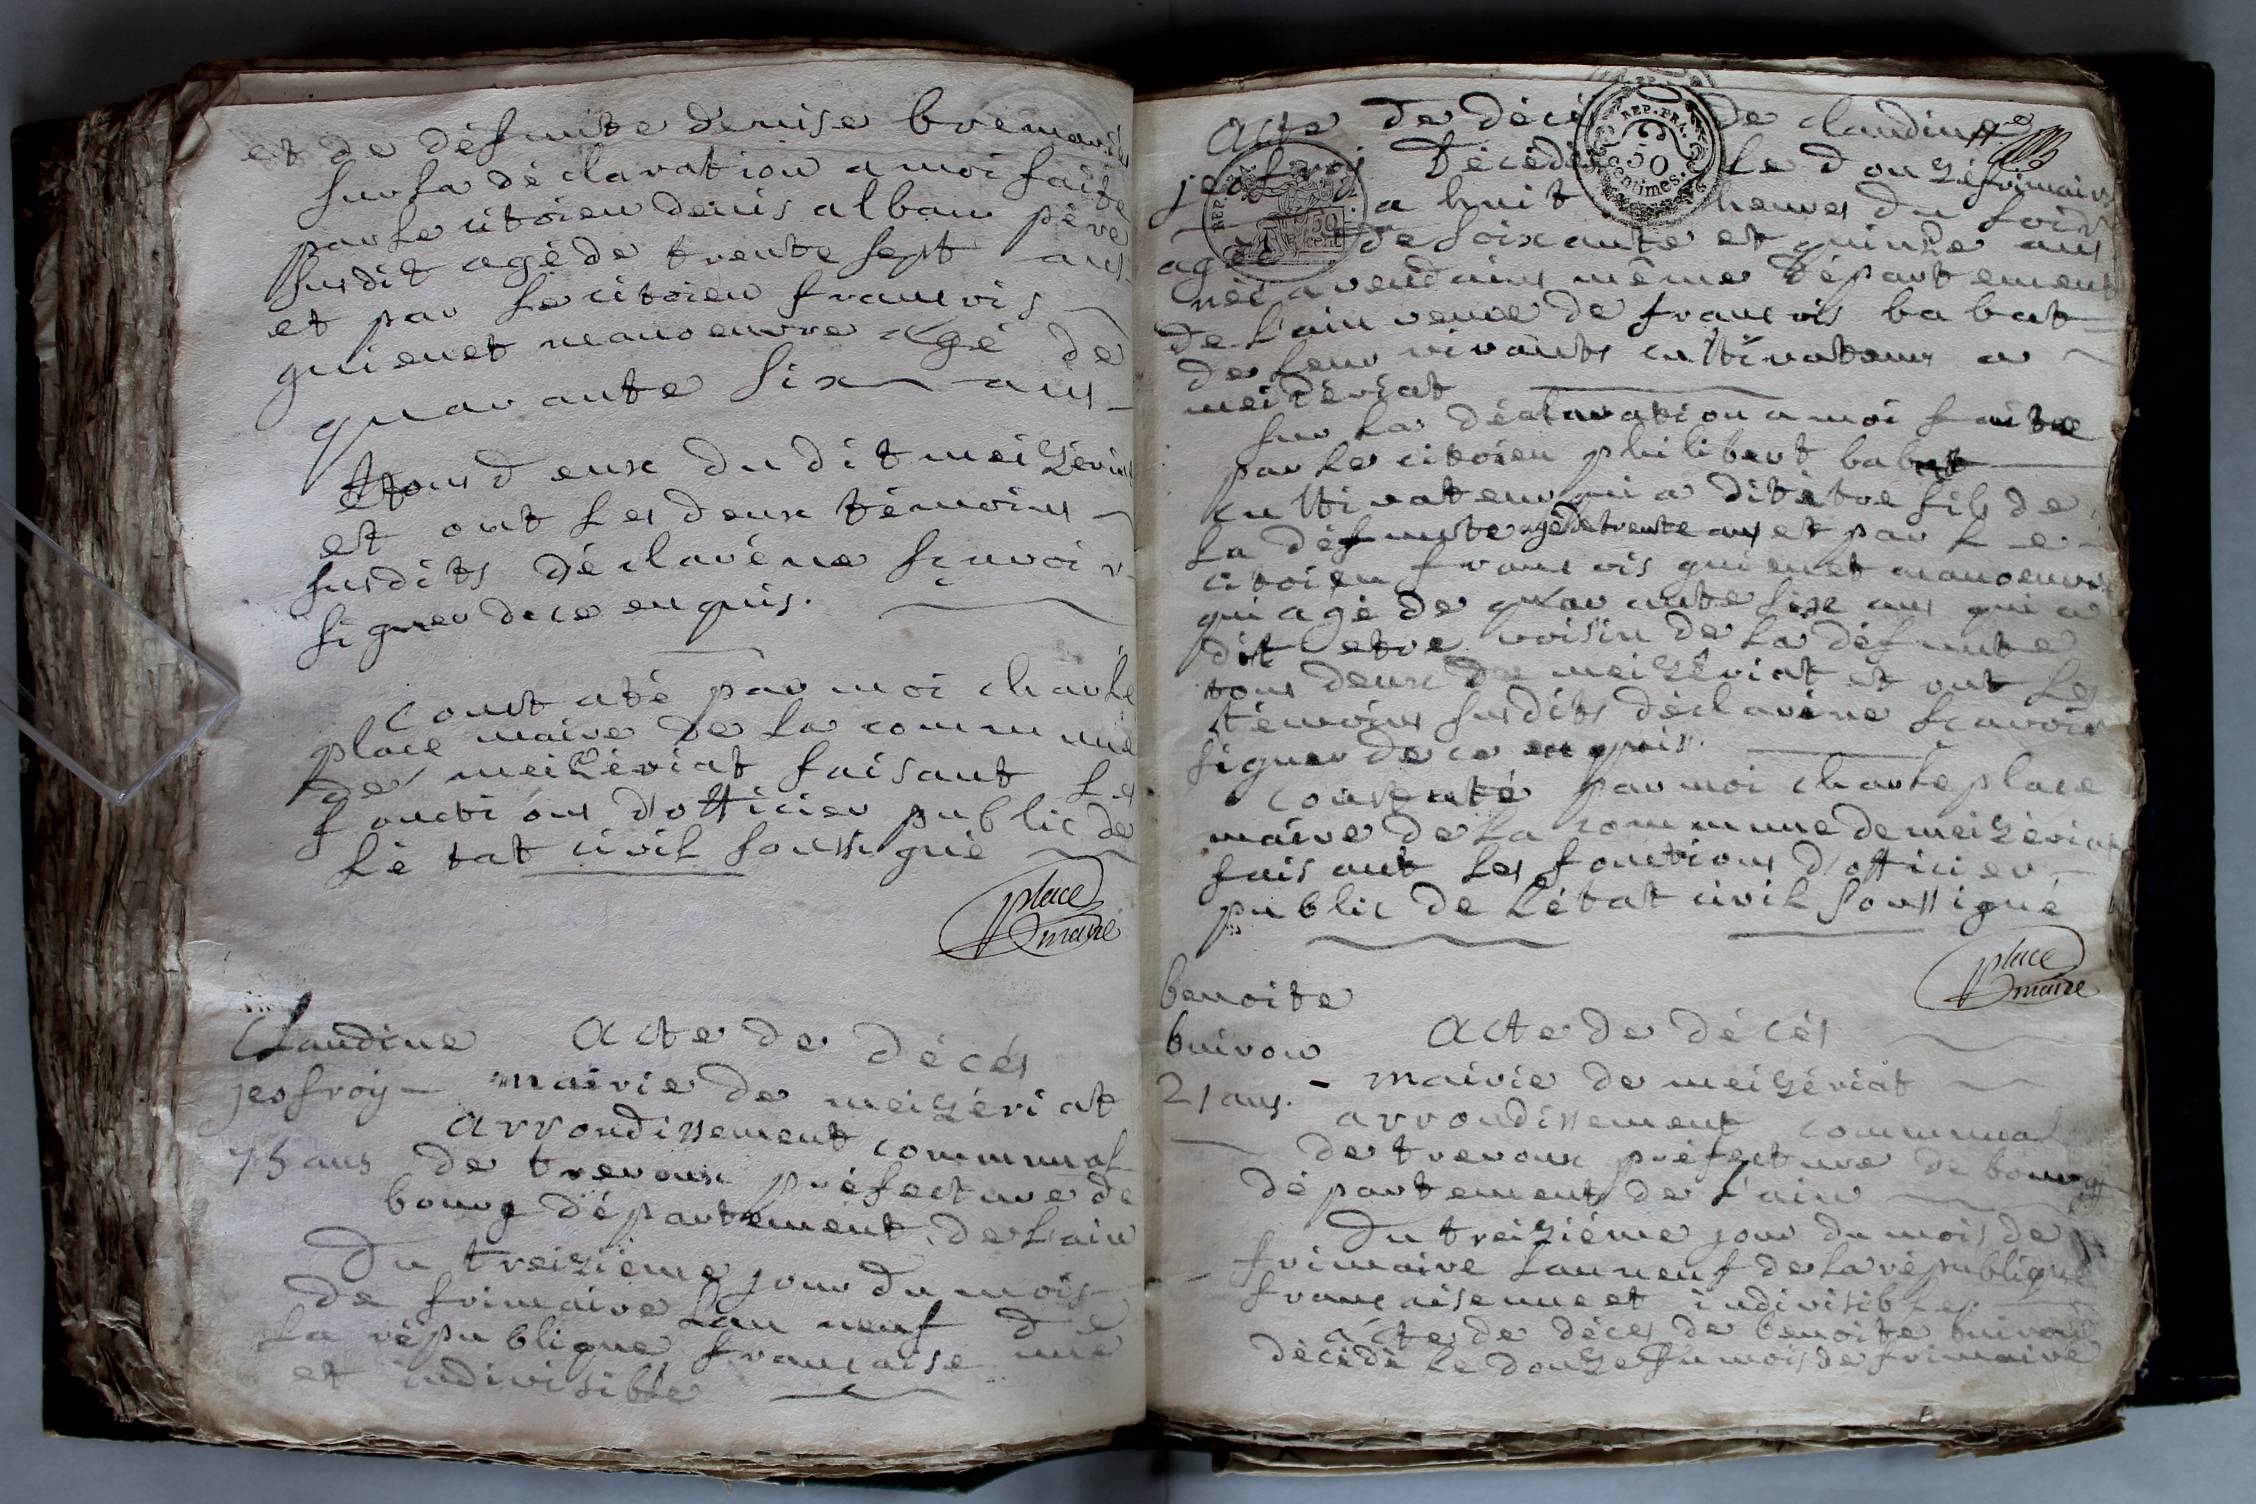 et de défunte denise bremaud
sur la déclaration a moi faite
par le citoien denis alban père
susdit agé de trente sept ans
et par le citoien francois
guienet manoeuvre agé de
quarante six ans
tous deux du dit meizériat
et ont les deux témoins
susdits déclaréne sçavoir
signer de ce enquis.
Constaté par moi charle
place maire de la commune
de meizériat faisant les
fonctions d'officier public de
Létat civil soussigné
place
maire
Claudine
jeofroy
75 ans
Acte de décés
mairie de meizériat
arrondissement communal
de trevoux préfecture de
bourg département de Lain
Du treizième jour du mois
de frimaire Lan neuf de
La république francaise une
et indivisible
Acte de décé de claudine
jeofroi Décédée Le douze frimaire
a huit heures du soir
agée de soixante et quinze ans
née a vendains même département
de L'ain veuve de francois babat
de Leur vivants cultivateurs a
meizériat
REP. FRA.
50
cent
REP. FRA.
50
centimes.
sur La déclaration a moi faite
par Le citoien philibert babat
cultivateur qui a dit être fils de
La défunte agé de trente ans et par Le
citoien francois guienet manoeuvre
qui agé de quarante six ans qui a
dit etre voisin de La défunte
tous deux de meizériat et ont Les
témoins susdits déclaréne sçavoir
signer de ce enquis.
Constaté par moi charle place
maire de La commune de meizériat
faisant Les fonctions d'officier
public de Létat civil soussigné
place
maire
benoite
buiron
21 ans.
Acte de décés
mairie de meizériat
arrondissement communal
de trevoux préfecture de bourg
département de L'ain
Du treiziéme jour du mois de
frimaire Lan neuf de La république
francaise une et indivisible
acte de décés de benoite buiron
décédé Le douze du mois de frimaire